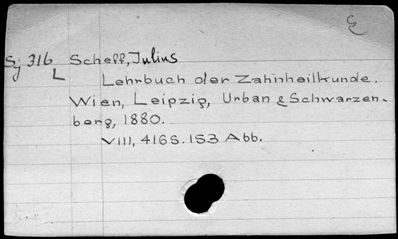 Sj 316 Scheff, Julius
L Lehrbuch der Zahnheilkunde.
Wien, Leipzig, Urban & Schwarzen-
berg, 1880.
VIII, 416 S. 153 Abb.